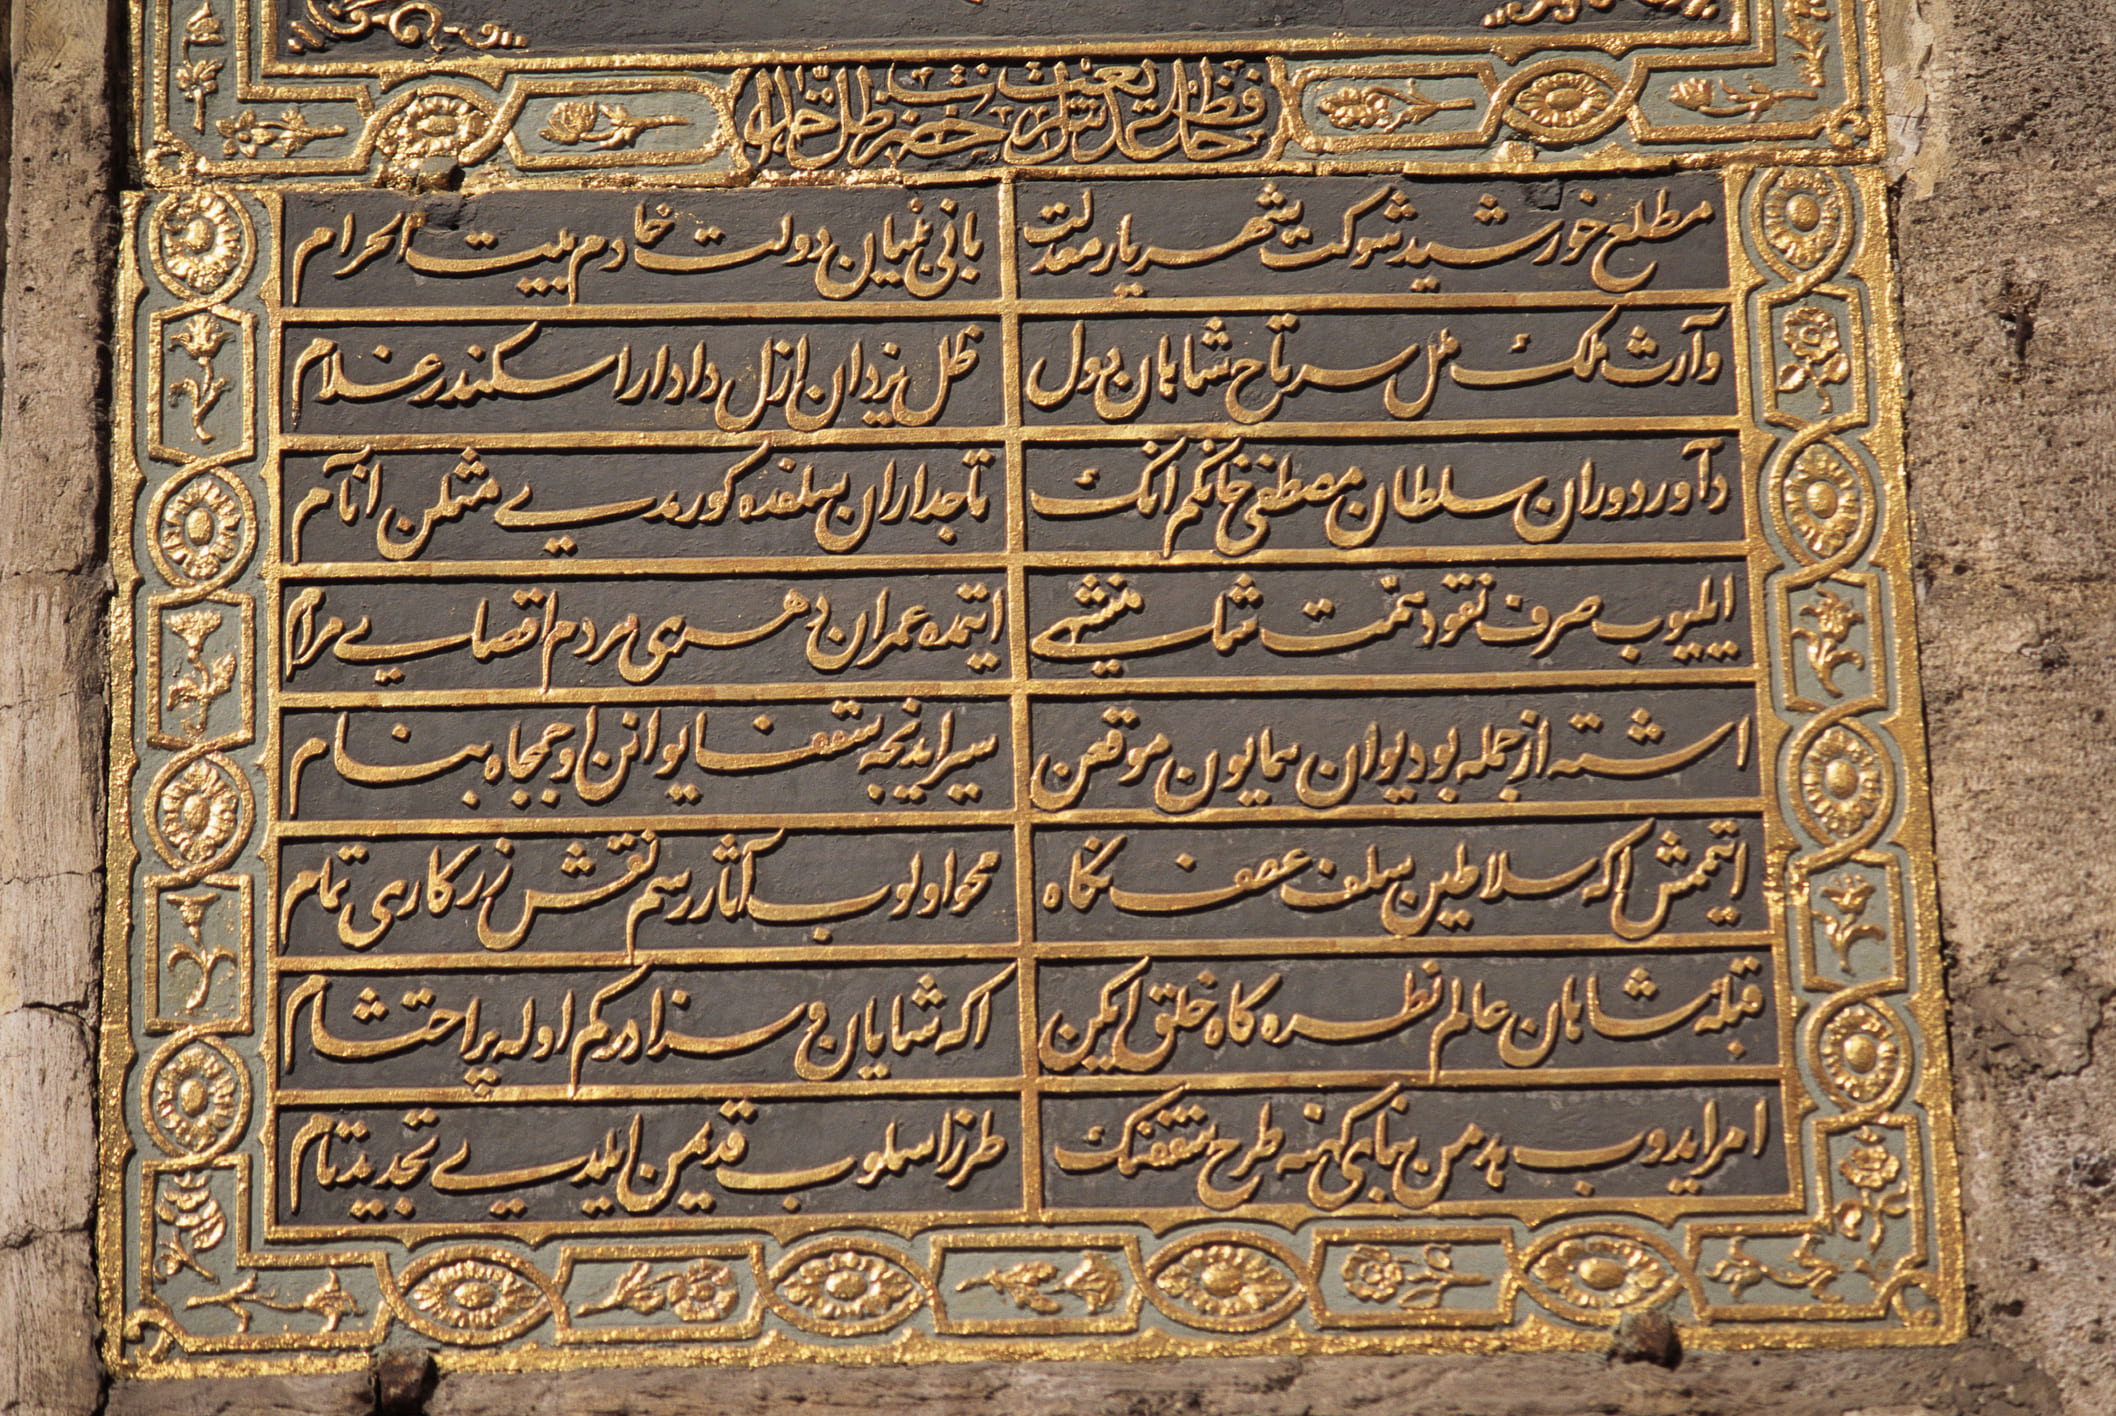 مطلع خورشید شوکت شهریار معدلت
بانی بنیان دولت خادم بیت الحرام
وارث ملک ملل سرتاج شاهان دول
ظل یزدان ازل دادار اسکندر غلام
داور دوران سلطان مصطفی خانکم انک
تاجداران سلفده کورمدی مثلن انام
ایلیوب صرف نقود همت شاهنشهی
ایتمده عمران دهری هر دم اقصای مرام
اشته از جمله بو دیوان همایون موقعن
سیر ایدنجه سقف ایوانن او جمجاه بنام
ایتمش اکه سلاطین سلف عطف نکاه
محو اولوب آثار رسم نقش زرکاری تمام
قبله شاهان عالم نظره کاه خلق ایکن
اکه شایان و سزادرکم اوله پر احتشام
امر ایدوب هدمن بنای کهنه طرح سقفنک
طرز اسلوب قدیمن ایلدی تجدید تام